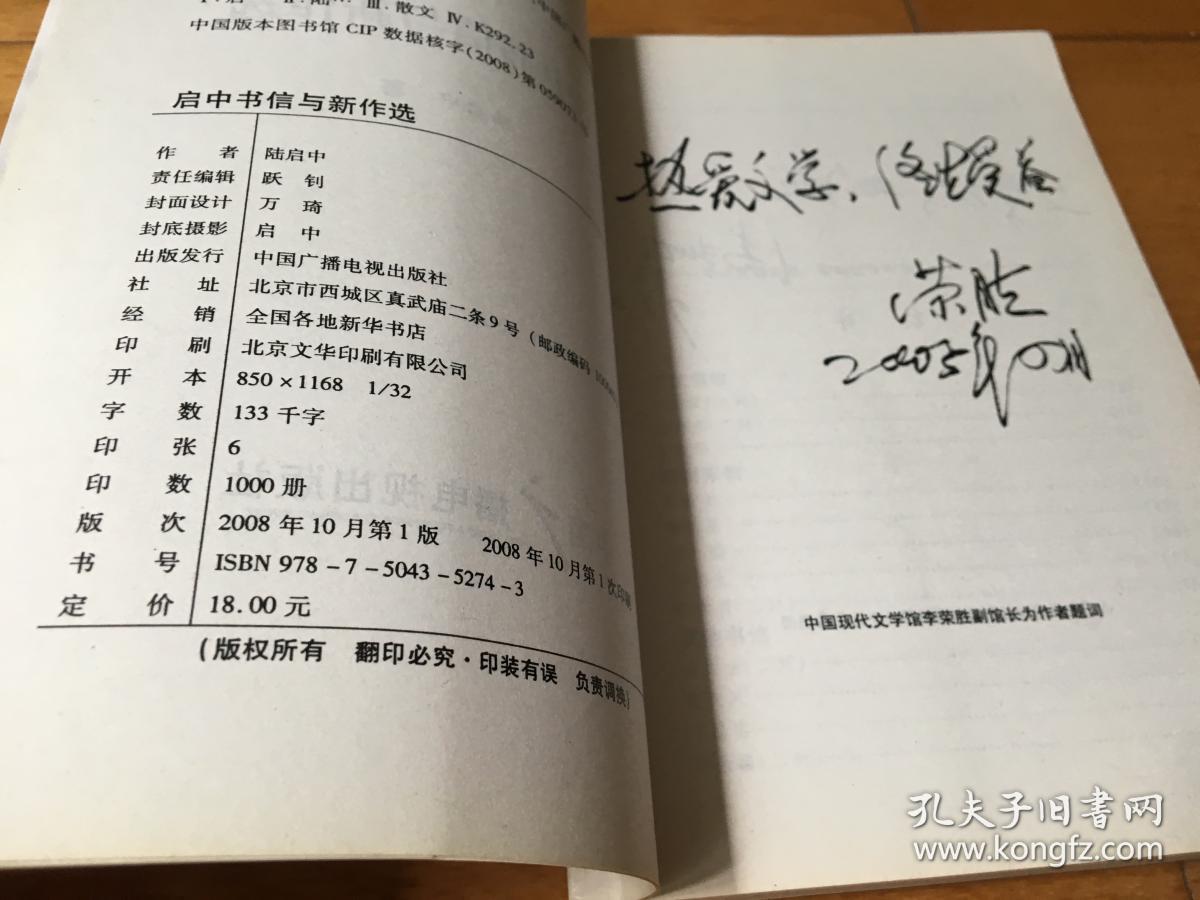 Ⅲ.散文 Ⅳ.K292.23
中国版本图书馆 CIP 数据核字(2008)第 059073
启中书信与新作选
作 者 陆启中
责任编辑 跃 钊
封面设计 万 琦
封底摄影 启 中
出版发行 中国广播电视出版社
社 址 北京市西城区真武庙二条9号(邮政编码
经 销 全国各地新华书店
印 刷 北京文华印刷有限公司
开 本 850×1168 1/32
字 数 133 千字
印 张 6
印 数 1000 册
版 次 2008 年 10 月第 1 版 2008 年 10 月第 1 次印刷
书 号 ISBN 978-7-5043-5274-3
定 价 18.00 元
(版权所有 翻印必究·印装有误 负责调换)
热爱文学,终生受益
荣胜
2005年
中国现代文学馆李荣胜副馆长为作者题词
孔夫子旧书网
www.kongfz.com